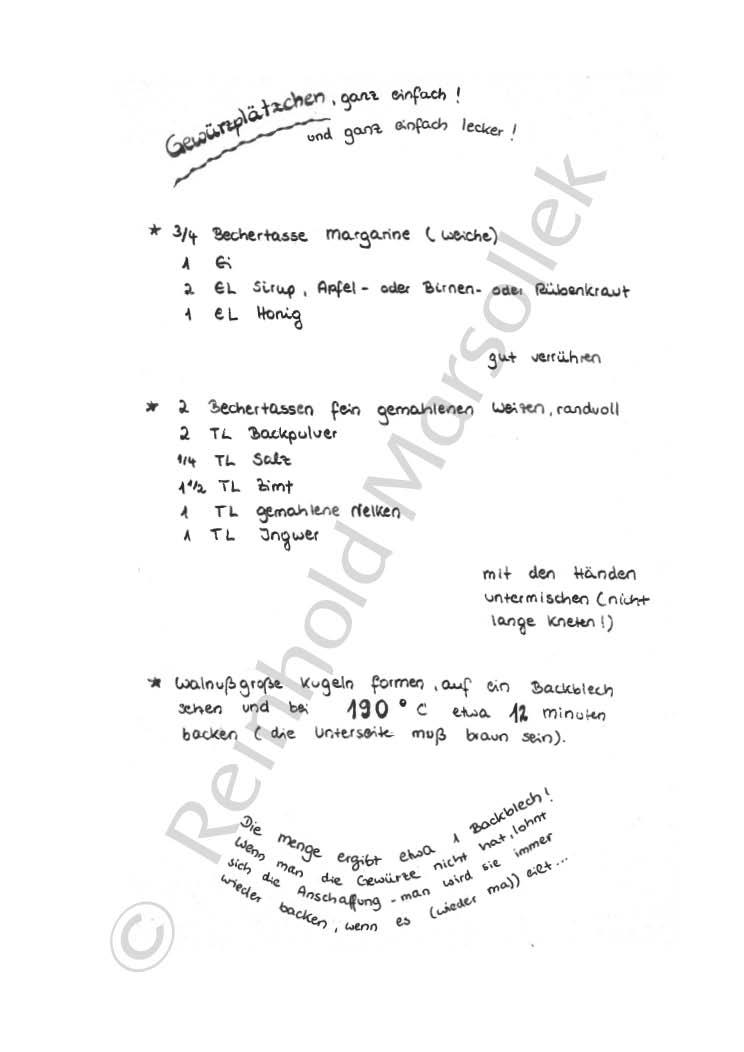 Gewürzplätzchen, ganz einfach!
und ganz einfach lecker!
* 3/4 Bechertasse Margarine (weiche)
1 Ei
2 EL Sirup, Apfel- oder Birnen- oder Rübenkraut
1 EL Honig
gut verrühren
* 2 Bechertassen fein gemahlenen Weizen, randvoll
2 TL Backpulver
1/4 TL Salz
1 1/2 TL Zimt
1 TL gemahlene Nelken
1 TL Ingwer
mit den Händen
untermischen (nicht
lange kneten!)
* Walnußgroße Kugeln formen, auf ein Backblech
setzen und bei 190° C etwa 12 Minuten
backen (die Unterseite muß braun sein).
Die Menge ergibt etwa 1 Backblech!
Wenn man die Gewürze nicht hat, lohnt
sich die Anschaffung - man wird sie immer
wieder backen, wenn es (wieder mal) eilt...
© Reinhold Marsollek